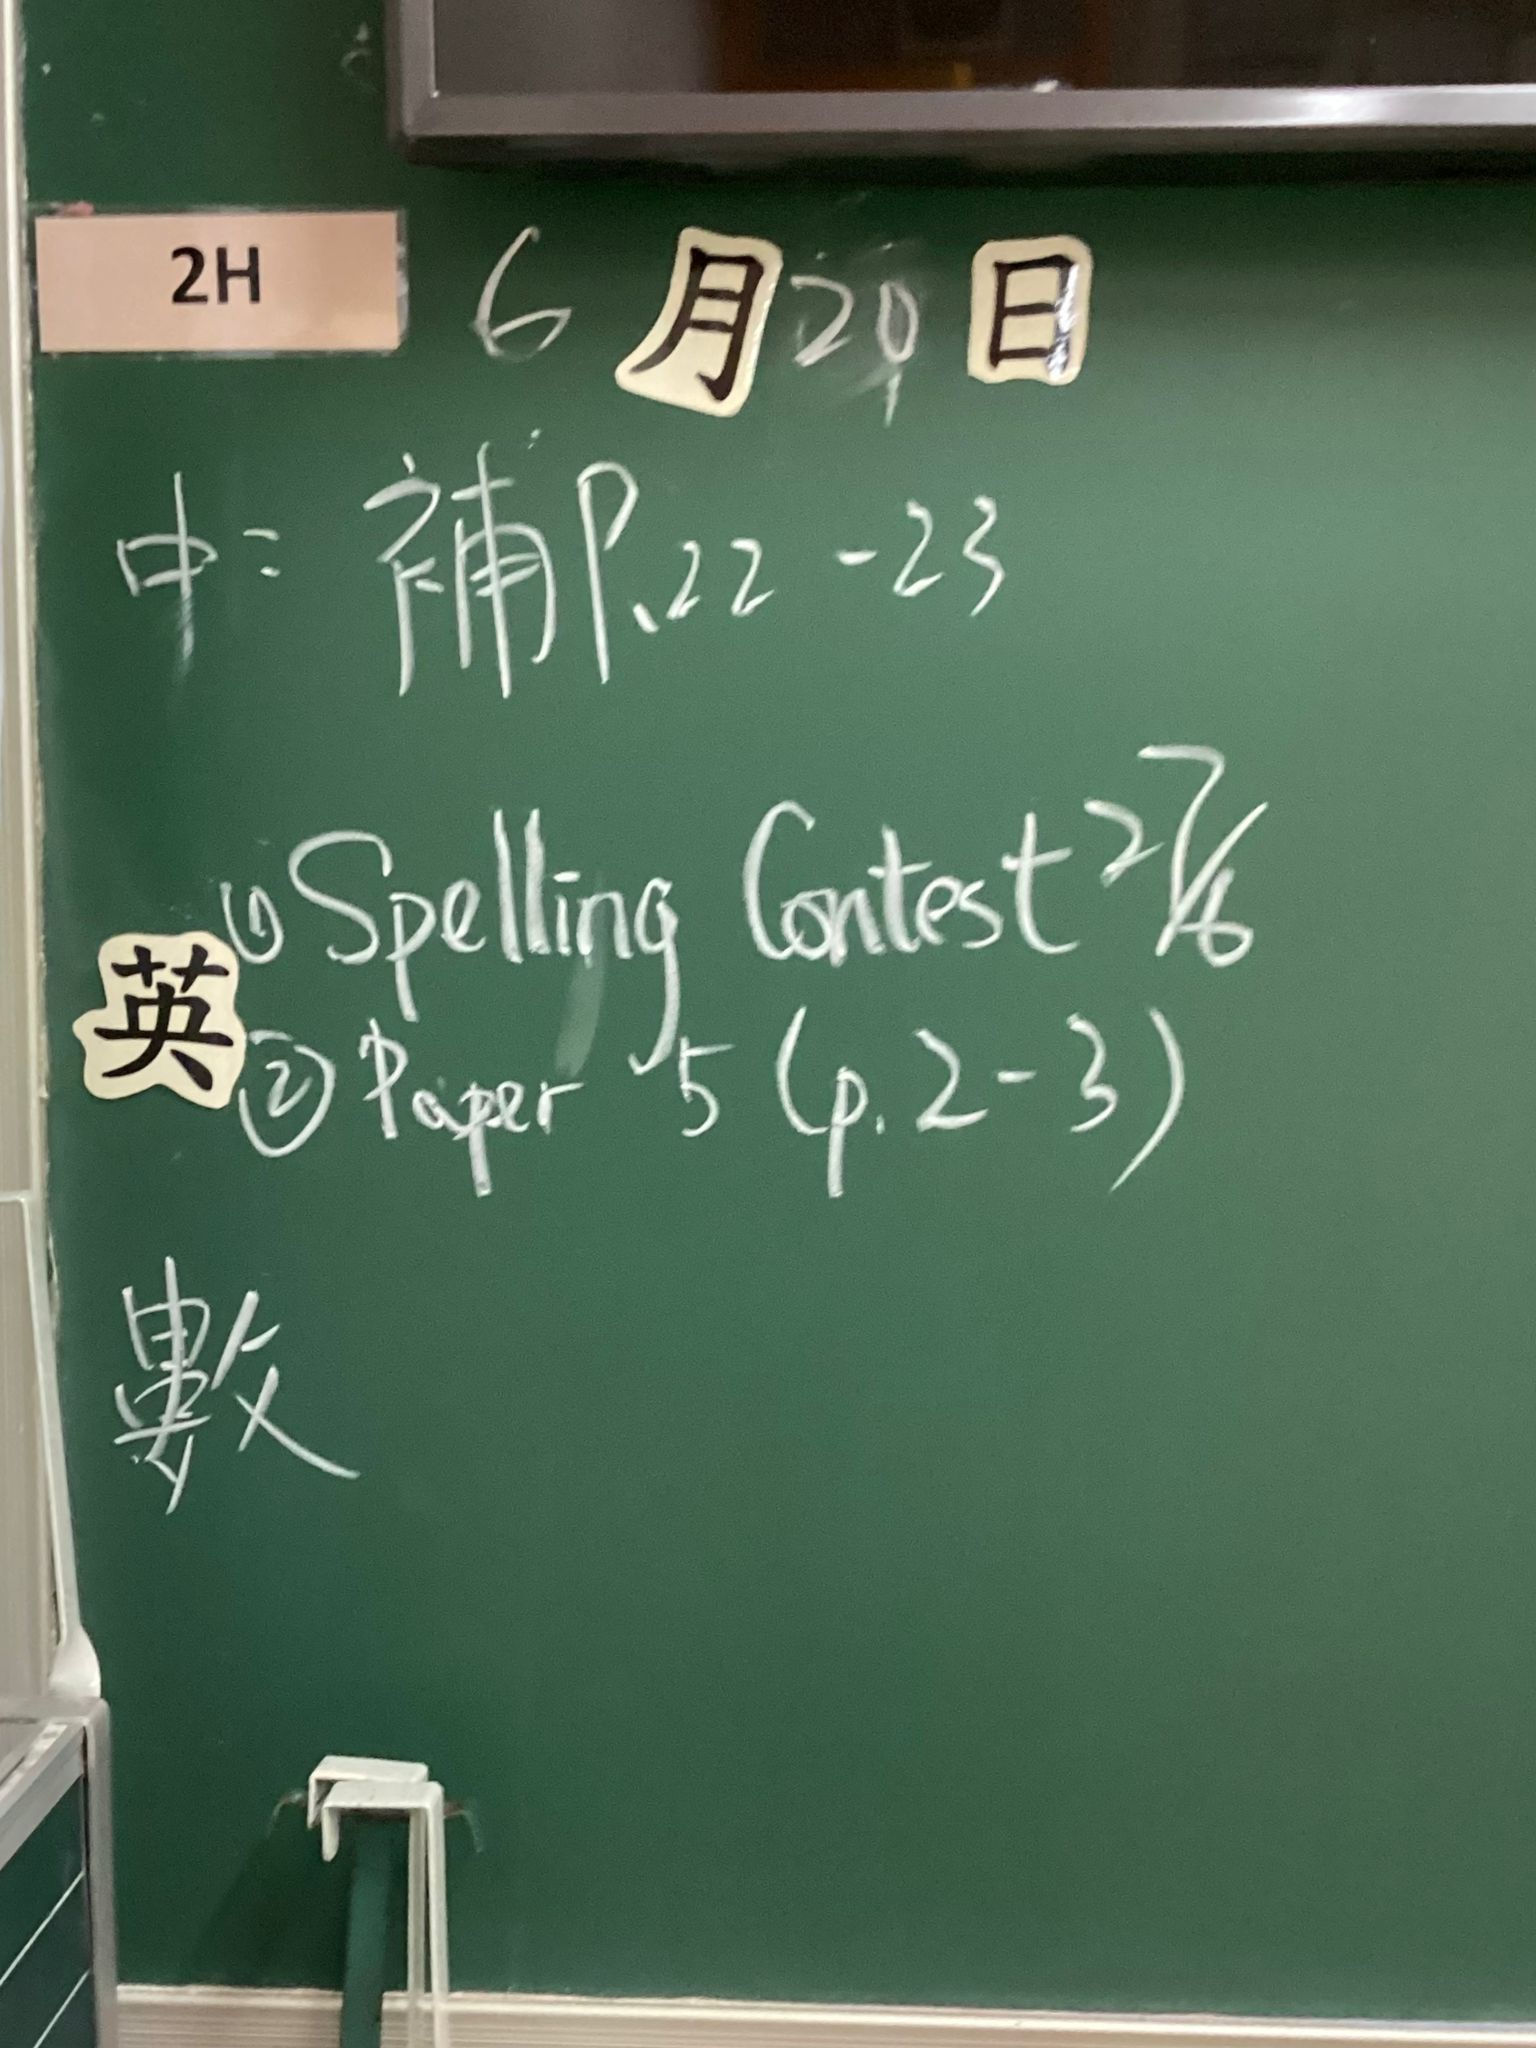 2H 6月20日
中: 補P.22-23
① Spelling Contest 27/6
英
② Paper 5 (p.2-3)
數